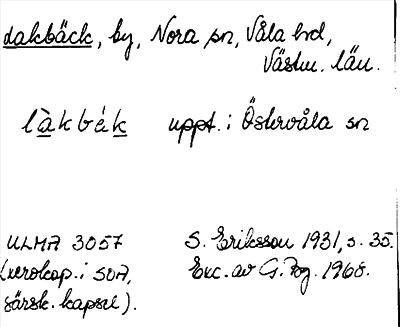 Lakbäck, by, Nora sn, Våla hd,
Västm. län.
làkbék uppt. i Östervåla sn
ULMA 3057 S. Eriksson 1931, s. 35.
(xerokop. i SOA, Exc. av G. Fog. 1968.
särsk. kapsel).